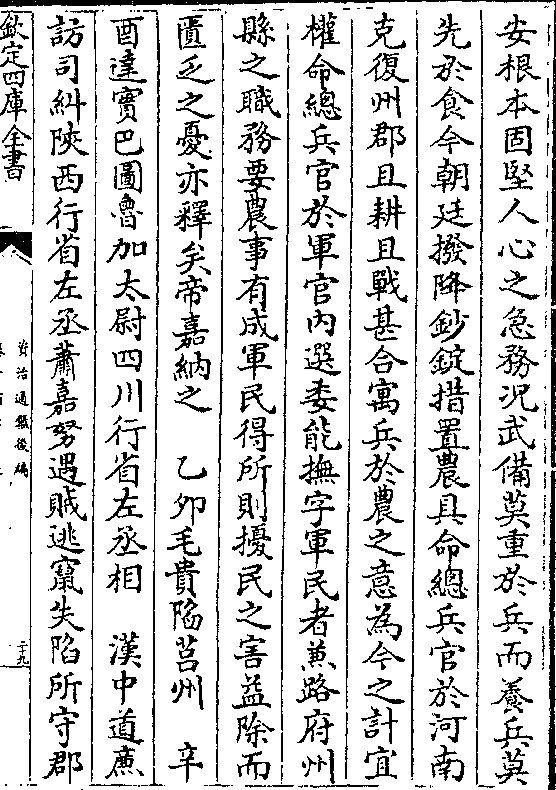 安根本固堅人心之急務況武備莫重於兵而養兵莫
先於食今朝廷撥降鈔錠措置農具命總兵官於河南
克復州郡且耕且戰甚合寓兵於農之意為今之計宜
權命總兵官於軍官内選委能撫字軍民者兼路府州
縣之職務要農事有成軍民得所則擾民之害益除而
匱乏之憂亦釋矣帝嘉納之　乙卯毛貴陷莒州　辛
酉達實巴圖魯加太尉四川行省左丞相　漢中道亷
訪司糾陝西行省左丞蕭嘉努遇賊逃竄失陷所守郡
欽定四庫全書
資治通鑑後編
二十九